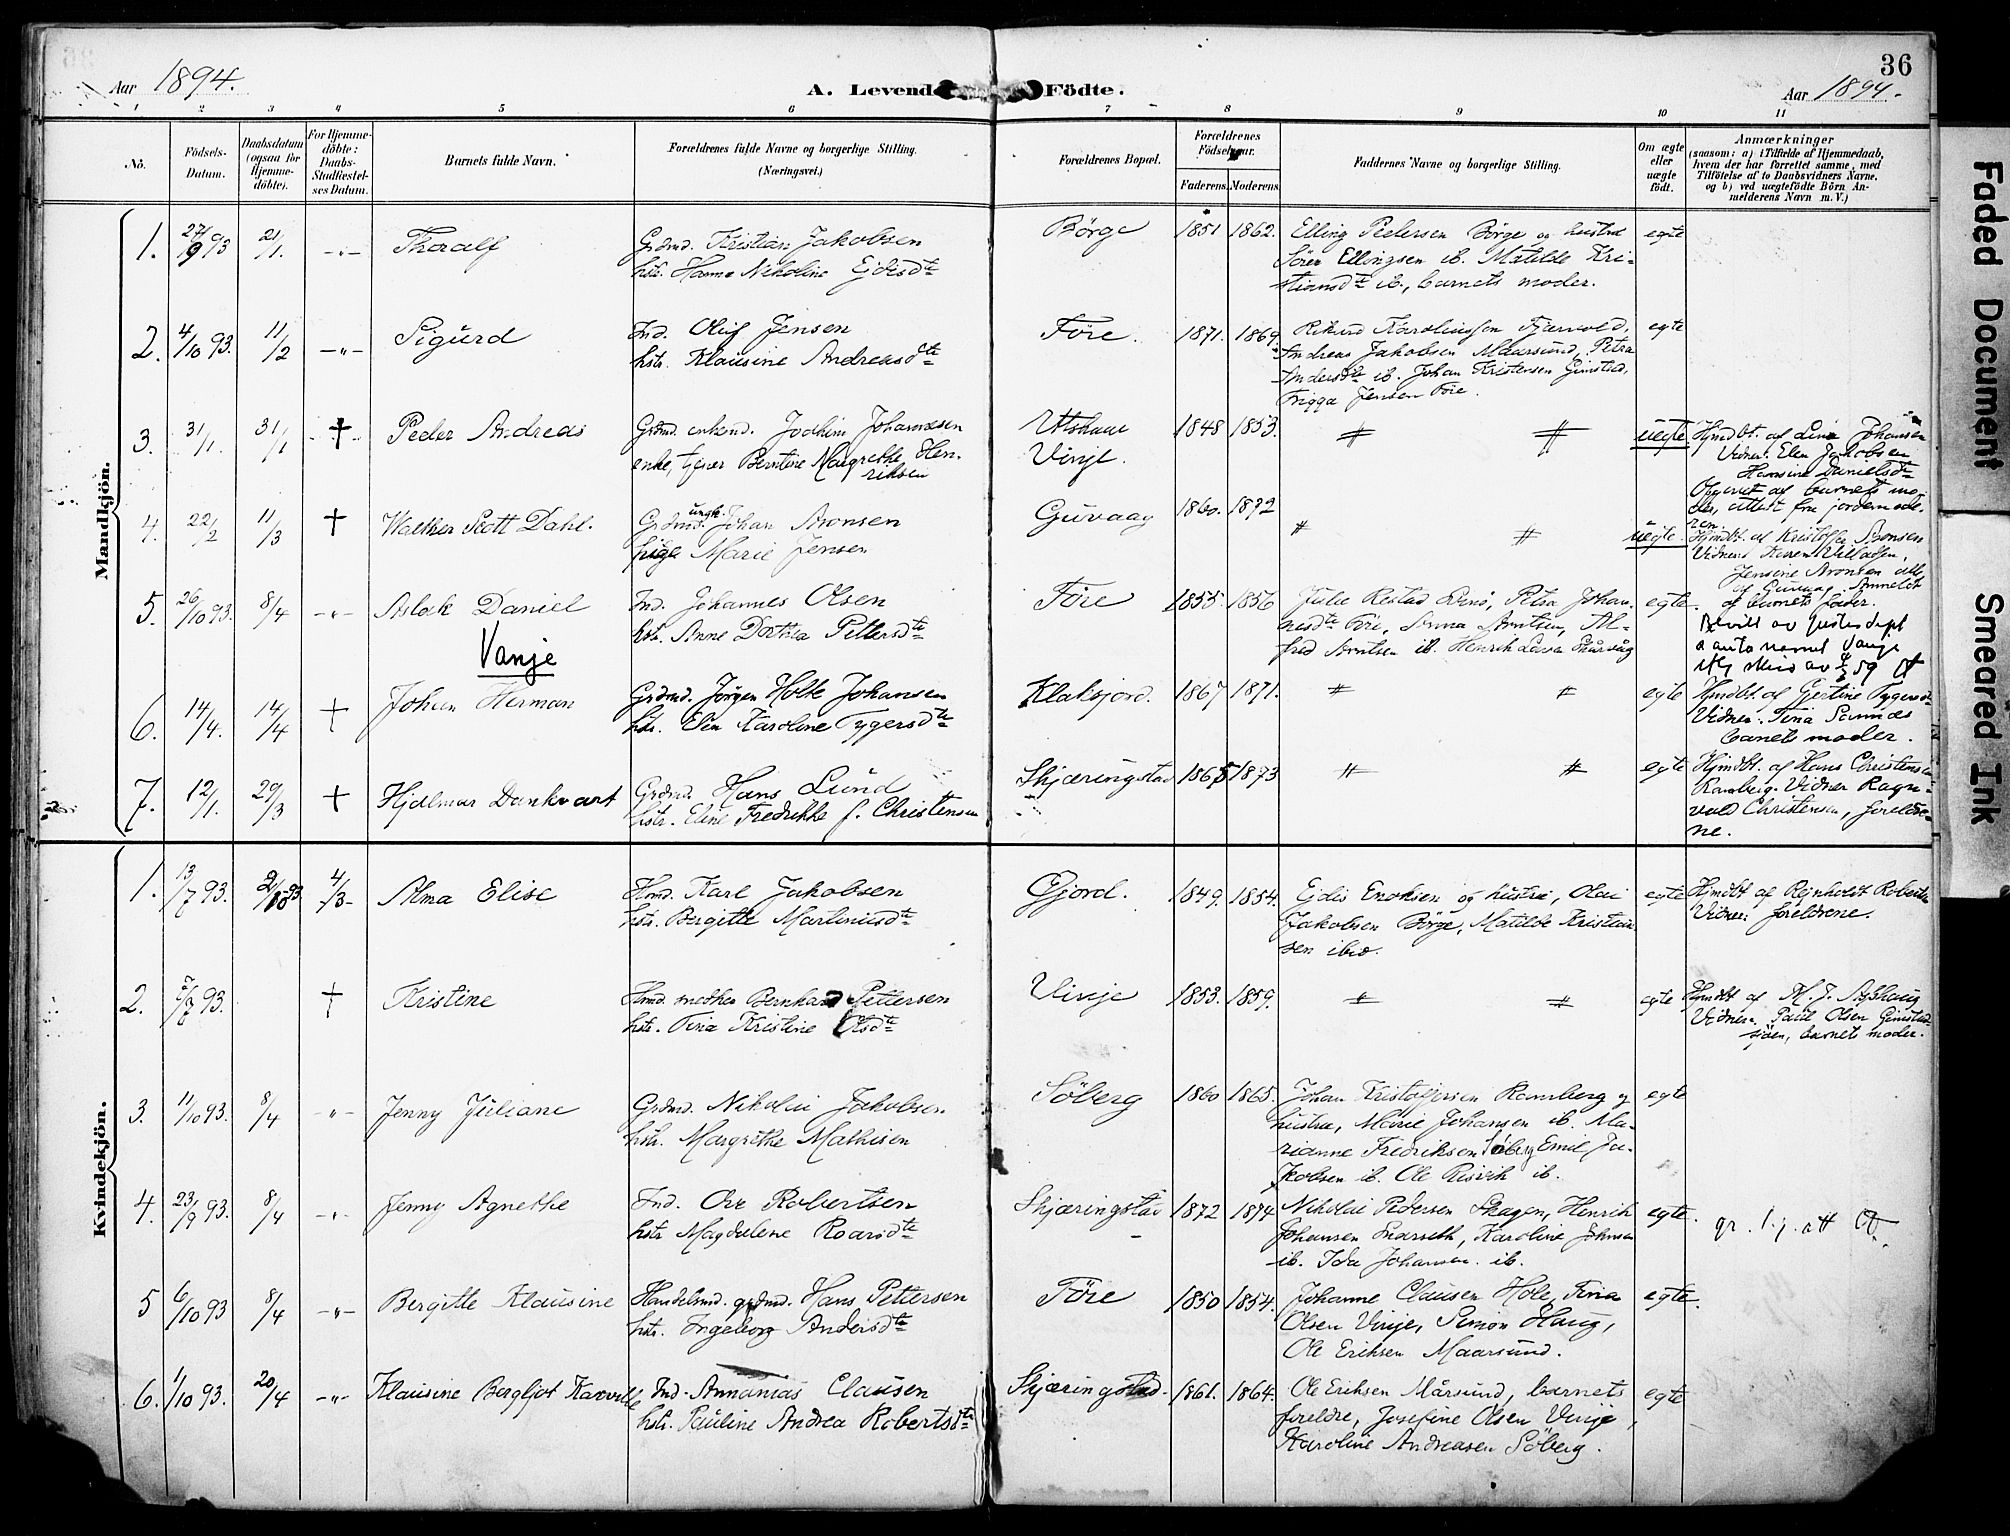 36
Aar 1894.
A. Levende Födte.
Aar 1894.
1 2 3 4 5 6 7 8 9 10 11
No.
Födsels-Datum.
Daabsdatum (ogsaa for Hjemme-döbte).
For Hjemme-döbte: Daabs-Stadfæstel-ses Datum.
Barnets fulde Navn.
Forældrenes fulde Navne og borgerlige Stilling.
(Næringsvei.)
Forældrenes Bopæl.
Forældrenes Födselsaar.
Faderens. Moderens.
Faddernes Navne og borgerlige Stilling.
Om ægte eller uægte födt.
Anmærkninger
(saasom: a) i Tilfælde af Hjemmedaab,
hvem der har forrettet samme, med
Tilföielse af to Daabsvidners Navne,
og b) ved uægtefödte Börn An-
melderens Navn m. V.)
Mandkjön.
1. 27/9 93 21/1. -„- Thoralf
Grdmd. Kristian Jakobsen
hstr. Hanna Nikoline Ejdisdtr
Börge 1851 1862.
Elling Pedersen Börge og hustru
Sören Ellingsen ib. Matilde Kri-
stiansdtr ib., barnets moder.
egte
2. 4/10 93. 11/2 -„- Sigurd
Ind. Oluf Jensen
hstr. Klausine Andreasdtr
Före. 1871. 1869.
Andreas Jakobsen Maarsund, Petra
Andersdtr ib. Johan Kristensen Gimstad,
Frigga Jensen Före.
egte
3. 31/1. 31/1 † Peder Andreas
Grdmd. enkemd. Joakim Johannesen
enke, tjener Berntine Margrethe Hen-
riksen
Vinje. 1848 1853. # #
uegte
Hjmdbt. af Lina Johansen
Vidner: Elen Jakobsen
Hansine Danielsdtr
Opgivet af barnets mo-
der, attest fra jordemode-
ren.
4. 22/2 11/3 † Walther Scott Dahl.
Grdmd. ungk. Johan Aronsen
pige Marie Jensen
Guvaag 1860. 1872 # #
uegte.
Hjmdbt. af Kristoffer Aronsen
Vidner: Karen Villadsen,
Jensine Aronsen alle
af Guvaag. Anmeldt
af barnets fader.
5. 26/10 93. 8/4 -„- Aslak Daniel
Vanje
Ind. Johannes Olsen
hstr. Anne Dorthea Pettersdtr
Före 1855. 1856
Julie Restad Börö, Petra Johan-
nesdtr Före, Anna Arntsen, Al-
fred Arntsen ib.
egte.
Bevill av justisdept
å anta navnet Vanje
6. 14/4. 14/4 † Johan Herman
Grdmd. Jörgen Holte Johansen
hstr. Elen Karoline Tygersdtr
Klaksjord. 1867 1871. # #
egte
Hjmdbt. af Gjertine Tygersdtr
Vidner: Tina Sannes
barnets moder.
7. 12/1. 29/3 † Hjalmar Dankvart
Grdmd. Hans Lund
hstr. Eline Fredrikke f. Christensen
Skjæringstad 1865 1873 # #
egte
Hjmdbt. af Hans Christensen
Ramberg. Vidner Ragn-
vald Christensen, foreldre-
ne.
Kvindekjön.
1. 13/7 93. 2/10 93 4/3- Alma Elise
Hmd. Karl Jakobsen
hstr. Bergitte Martinusdtr
Gjord. 1849. 1854.
Ejdis Enoksen og hustru, Olai
Jakobsen Börge, Matilde Kristian
sen ibid.
egte
Hjmdbt af Rejnholdt Robertsen
Vidner: foreldrene.
2. 7/7 93. † Kristine
Hmd. snedker Bernhard Pettersen
hstr. Tina Kristine Olsdtr
Vinje 1853. 1859. # #
egte
Vidner: Paul Olsen Gimstad-
sjöen, barnets moder.
3. 11/10 93. 8/4 -„- Jenny Juliane
Grdmd. Nikolai Jakobsen
hstr. Margrethe Mathisen
Söberg 1860 1865.
Johan Kristofersen Ramberg og
hustru, Marie Johansen ib. Ma-
rianne Fredriksen Söberg Emil Ja-
kobsen ib. Ole Risvik ib.
egte
4. 23/9 93. 8/4 -„- Jenny Agnethe
Ind. Ove Robertsen
hstr Magdalene Roarsdtr
Skjæringstad 1872 1874
Nikolai Pedersen Skagen, Henrik
Johansen Snarseth, Karoline Johnsen
ib. Ida Johansen ib.
egte.
5 6/10 93 8/4 -„- Bergitte Klausine
Handelsmd. grdmd. Hans Pettersen
hstr. Ingeborg Andersdtr
Före 1850 1854.
Johanne Clausen Hole, Tina
Olsen Vinje, Simon Haug,
Ole Eriksen Maarsund.
egte.
6. 1/10 93. 20/4 -„- Klausine Bergljot
Ind. Annanias Clausen
hstr. Pauline Andrea Robertsdtr
Skjæringstad. 1861. 1864.
Ole Eriksen Mårsund, barnets
foreldre, Josefine Olsen Vinje,
Karoline Andreasen Söberg.
egte
Faded Document
Smeared Ink